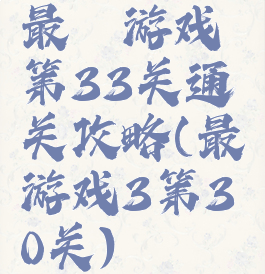 最 游戏
第33关通
关攻略(最
游戏3第3
0关)